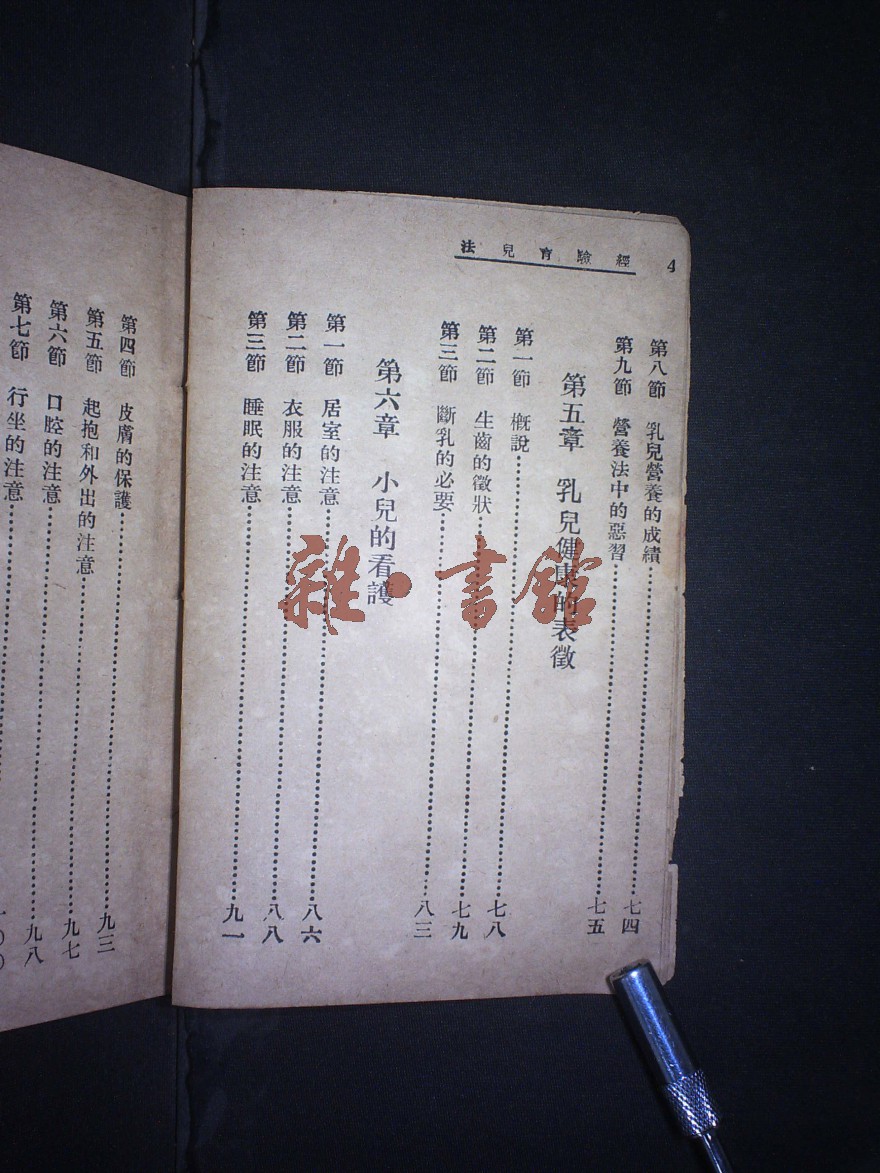 經驗育兒法 4
第八節 乳兒營養的成績 七四
第九節 營養法中的惡習 七五
第五章 乳兒健康的表徵
第一節 槪說 七八
第二節 生齒的徵狀 七九
第三節 斷乳的必要 八三
第六章 小兒的看護
第一節 居室的注意 八六
第二節 衣服的注意 八八
第三節 睡眠的注意 九一
第四節 皮膚的保護 九三
第五節 起抱和外出的注意 九七
第六節 口腔的注意 九八
第七節 行坐的注意 一〇〇
雜·書館